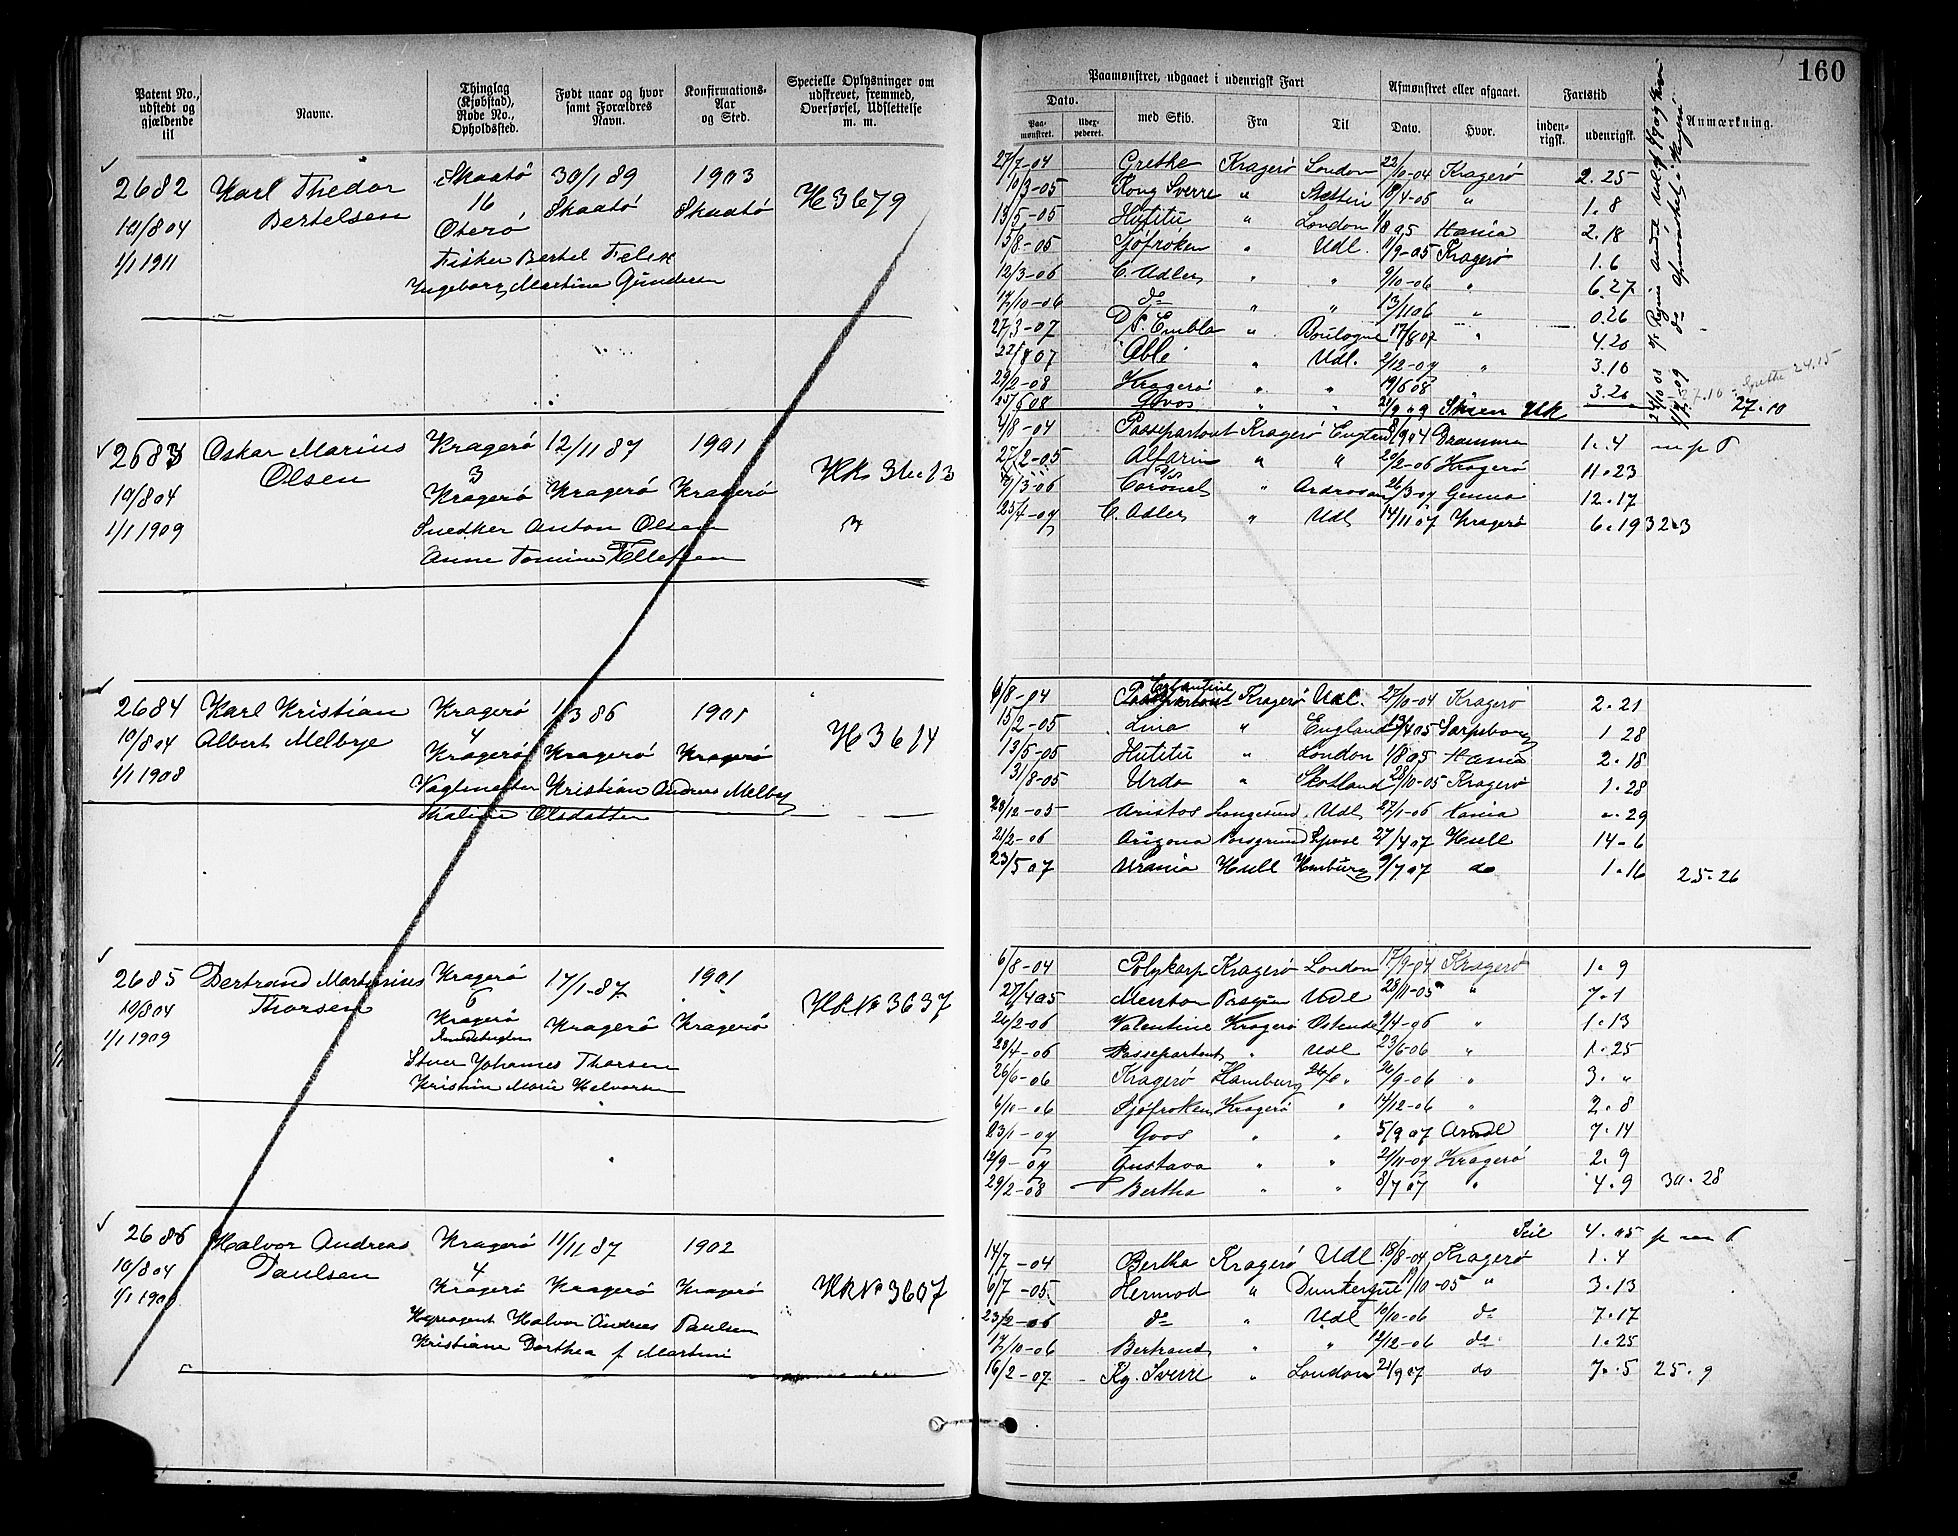 160
Patent No., udstedt og gjældende til
Navne.
Thinglag (Kjøbstad), Rode No., Opholdssted.
Født naar og hvor samt Forældres Navn.
Konfirmations-Aar og Sted.
Specielle Oplysninger om udskrevet, fremmed, Overførsel, Udslettelse m. m.
Paamønstret, udgaaet i udenrigsk Fart
Afmønstret eller afgaaet.
Fartstid
Anmærkning.
Dato.
Paa-mønstret.
Udex-pederet.
med Skib.
Fra
Til
Dato.
Hvor.
inden-rigsk.
udenrigsk.
2682 Karl Thedor Skaatö 30/1 89 1903 H 3679
Bertelsen 16 Skaatö Skaatö
19/8 04 Oterö
1/1 1911 Fisker Bertel Felix
Ingeborg Martine Gundersen
27/7-04 Grethe Kragerö London 22/10-04 Kragerö 2.25
10/3-05 Kong Sverre " Stettin 18/4-05 " 1.8
13/5-05 Hutitu " London 1/8 05 Hania 2.18
5/8-05 Sjöfröken " Udl. 11/9-05 Kragerö 1.6
12/3-06 C. Adler " " 9/10-06 " 6.27
17/10-06 do " " 13/11 06 " 0.26
27/3-07 D/S. Embla " Boulogne 17/8 07 " 4.20
22/8 07 Able " Udl. 2/12-07 " 3.10
29/2-08 Kragerö " " 19/6 08 " 3.20
25/6 08 Gvos " " 21/9 09 Skien 27.10
2683 Oskar Marius Kragerö 12/11 87 1901
Olsen 3
19/8 04 Kragerö Kragerö Kragerö
1/1 1909 Snedker Anton Olsen
Anne Tomine Ellefsen
1/8-04 Passepartout Kragerö 8/9 04 1.4
27/2-05 Alfarin " " 20/2-06 Kragerö 11.23
7/3-06 D/S Coronel " Ardrosan 26/3-07 12.17
25/4-07 C. Adler " Udl 14/11 07 Kragerö 6.19 32.3
2684 Karl Kristian Kragerö 1/3 86 1901 H 3614
19/8 04 Albert Melbye 4
1/1 1908 Kragerö Kragerö Kragerö
Vagtmester Kristian Andreas Melbye
Olsdatter
6/8-04 Kragerö Udl. 27/10-04 Kragerö 2.21
15/2-05 Lina " England 13/4 05 Sarpsborg 1 28
13/5-05 Hutitu " London 1/8 05 Hania 2.18
31/8-05 Urda " Skotland 28/10-05 Kragerö 1.28
28/12-05 Aristos Langesund Udl 27/1-06 Hania ".29
21/2-06 Arizona Porsgrund 27/4 07 Hull 14-6
23/5 07 Urania Hull Hamburg 9/7 07 do 1.16 25.26
2685 Bertrand Martinius Kragerö 17/1-87 1901 HR No 3637
19/8 04 Thorsen 6
1/1 1909 Kragerö Kragerö Kragerö
Johannes Thorsen
Kristine Marie Halvorsen
6/8-04 Polykarp Kragerö London 17/9-04 Kragerö 1.9
27/4 05 Menton Udl 28/11-05 " 7.1
26/2-06 Valentine Kragerö Ostende 9/4-06 " 1.13
28/4-06 Passepartout " Udl 23/6-06 " 1.25
26/6-06 Kragerö Hamburg 26/9-06 " 3. "
6/10-06 Sjöfröken Kragerö " 14/12-06 " 2.8
23/1-07 Gvos " " 5/9 07 Arndl 7.14
12/9-07 Gustava " " 21/11-07 Kragerö 2.9
29/2-08 Bertha " " 8/7 07 " 4.9 30.28
2686 Halvor Andreas Kragerö 11/11 87 1902 HR No 3607
19/8 04 Paulsen 4
Kragerö Kragerö Kragerö
Halvor Andreas Paulsen
Kristiane Dorthea f Martini
4.05
14/7-04 Bertha Kragerö Udl 18/8-04 Kragerö 1.4
6/7-05 Hermod " Dunkerque 19/10-05 " 3.13
23/2-06 do " Udl 10/10-06 do 7.17
17/10-06 Bertrand " " 12/12-06 do 1.25
16/2-07 Kg. Sverre " London 21/9 07 do 7.5 25.9